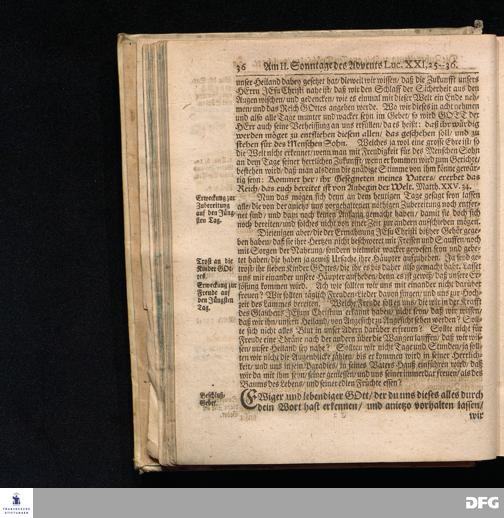 36 Am II. Sonntage des Advents Luc. XXI, 25-36.
unser Heiland dabey gesetzet hat/ dieweil wir wissen/ daß die Zukunfft unsers
HErrn JEsu Christi nahe ist/ daß wir den Schlaff der Sicherheit aus den
Augen wischen/ und gedencken/ wie es einmal mit dieser Welt ein Ende neh-
men/ und das Reich GOttes angehen werde. Wo wir dieses in acht nehmen
und also alle Tage munter und wacker seyn im Gebet/ so wird GOTT der
HErr auch seine Verheissung an uns erfüllen/ da es heißt: daß ihr würdig
werden möget zu entfliehen diesem allen/ das geschehen soll/ und zu
stehen für des Menschen Sohn. Welches ja wol eine grosse Ehre ist/ so
die Welt nicht erkennet/ wenn man mit Freudigkeit für des Menschen Sohn
an dem Tage seiner herrlichen Zukunfft/ wenn er kommen wird zum Gerichte/
bestehen wird/ daß man alsdenn die gnädige Stimme von ihm könne gewär-
tig seyn: Kommet her/ ihr Gesegneten meines Vaters/ ererbet das
Reich/ das euch bereitet ist von Anbegin der Welt. Matth. XXV. 34.
Erweckung zur
Zubereitung
auf den Jüng-
sten Tag.
Nun das mögen sich denn an dem heutigen Tage gesagt seyn lassen
alle/ die von der anietzo uns vorgehaltenen nöthigen Zubereitung noch entfer-
net sind/ und dazu noch keinen Anfang gemacht haben/ damit sie doch sich
noch bereiten/ und solches nicht von einer Zeit zur andern aufschieben mögen.
Diejenigen aber/ die der Ermahnung JEsu Christi bißher Gehör gege-
ben haben/ daß sie ihre Hertzen nicht beschweret mit Fressen und Sauffen/ noch
mit Sorgen der Nahrung/ sondern vielmehr wacker gewesen seyn und gebe-
Trost an die
Kinder GOt-
tes.
tet haben/ die haben ja gewiß Ursache ihre Häupter aufzuheben. Ja seyd ge-
trost/ ihr lieben Kinder GOttes/ die ihr es bis daher also gemacht habt. Lasset
uns mit einander unsere Häupter aufheben/ denn es ist gewiß/ daß unsere Er-
Erweckung zur
Freude auf
den Jüngsten
Tag.
lösung kommen wird. Ach wie sollten wir uns mit einander nicht darüber
freuen? Wir sollten täglich Freuden-Lieder davon singen/ und uns zur Hoch-
zeit des Lammes bereiten. Welche Freude sollen uns/ die wir in der Krafft
des Glaubens JEsum Christum erkannt haben/ nicht seyn/ daß wir wissen/
daß wir ihn/ unsern Heiland/ von Angesicht zu Angesicht sehen werden? Soll-
te sich nicht alles Blut in unser Adern darüber erfreuen? Sollte nicht für
Freude eine Thräne nach der andern über die Wangen lauffen/ daß wir wis-
sen/ unser Heiland sey nahe? Sollten wir nicht Tage und Stunden/ ja soll-
ten wir nicht die Augenblicke zählen/ bis er kommen wird in seiner Herrlich-
keit/ und uns in sein Paradies/ in seines Vaters Hauß einführen wird/ daß
wir da mit ihm seyn/ seiner geniessen/ und uns seiner immerdar freuen/ als des
Baums des Lebens/ und seiner edlen Früchte essen?
Beschluß-
Gebet.
EWiger und lebendiger GOtt/ der du uns dieses alles durch
dein Wort hast erkennen/ und anietzo vorhalten lassen/
wir
FRANCKESCHE
STIFTUNGEN
DFG